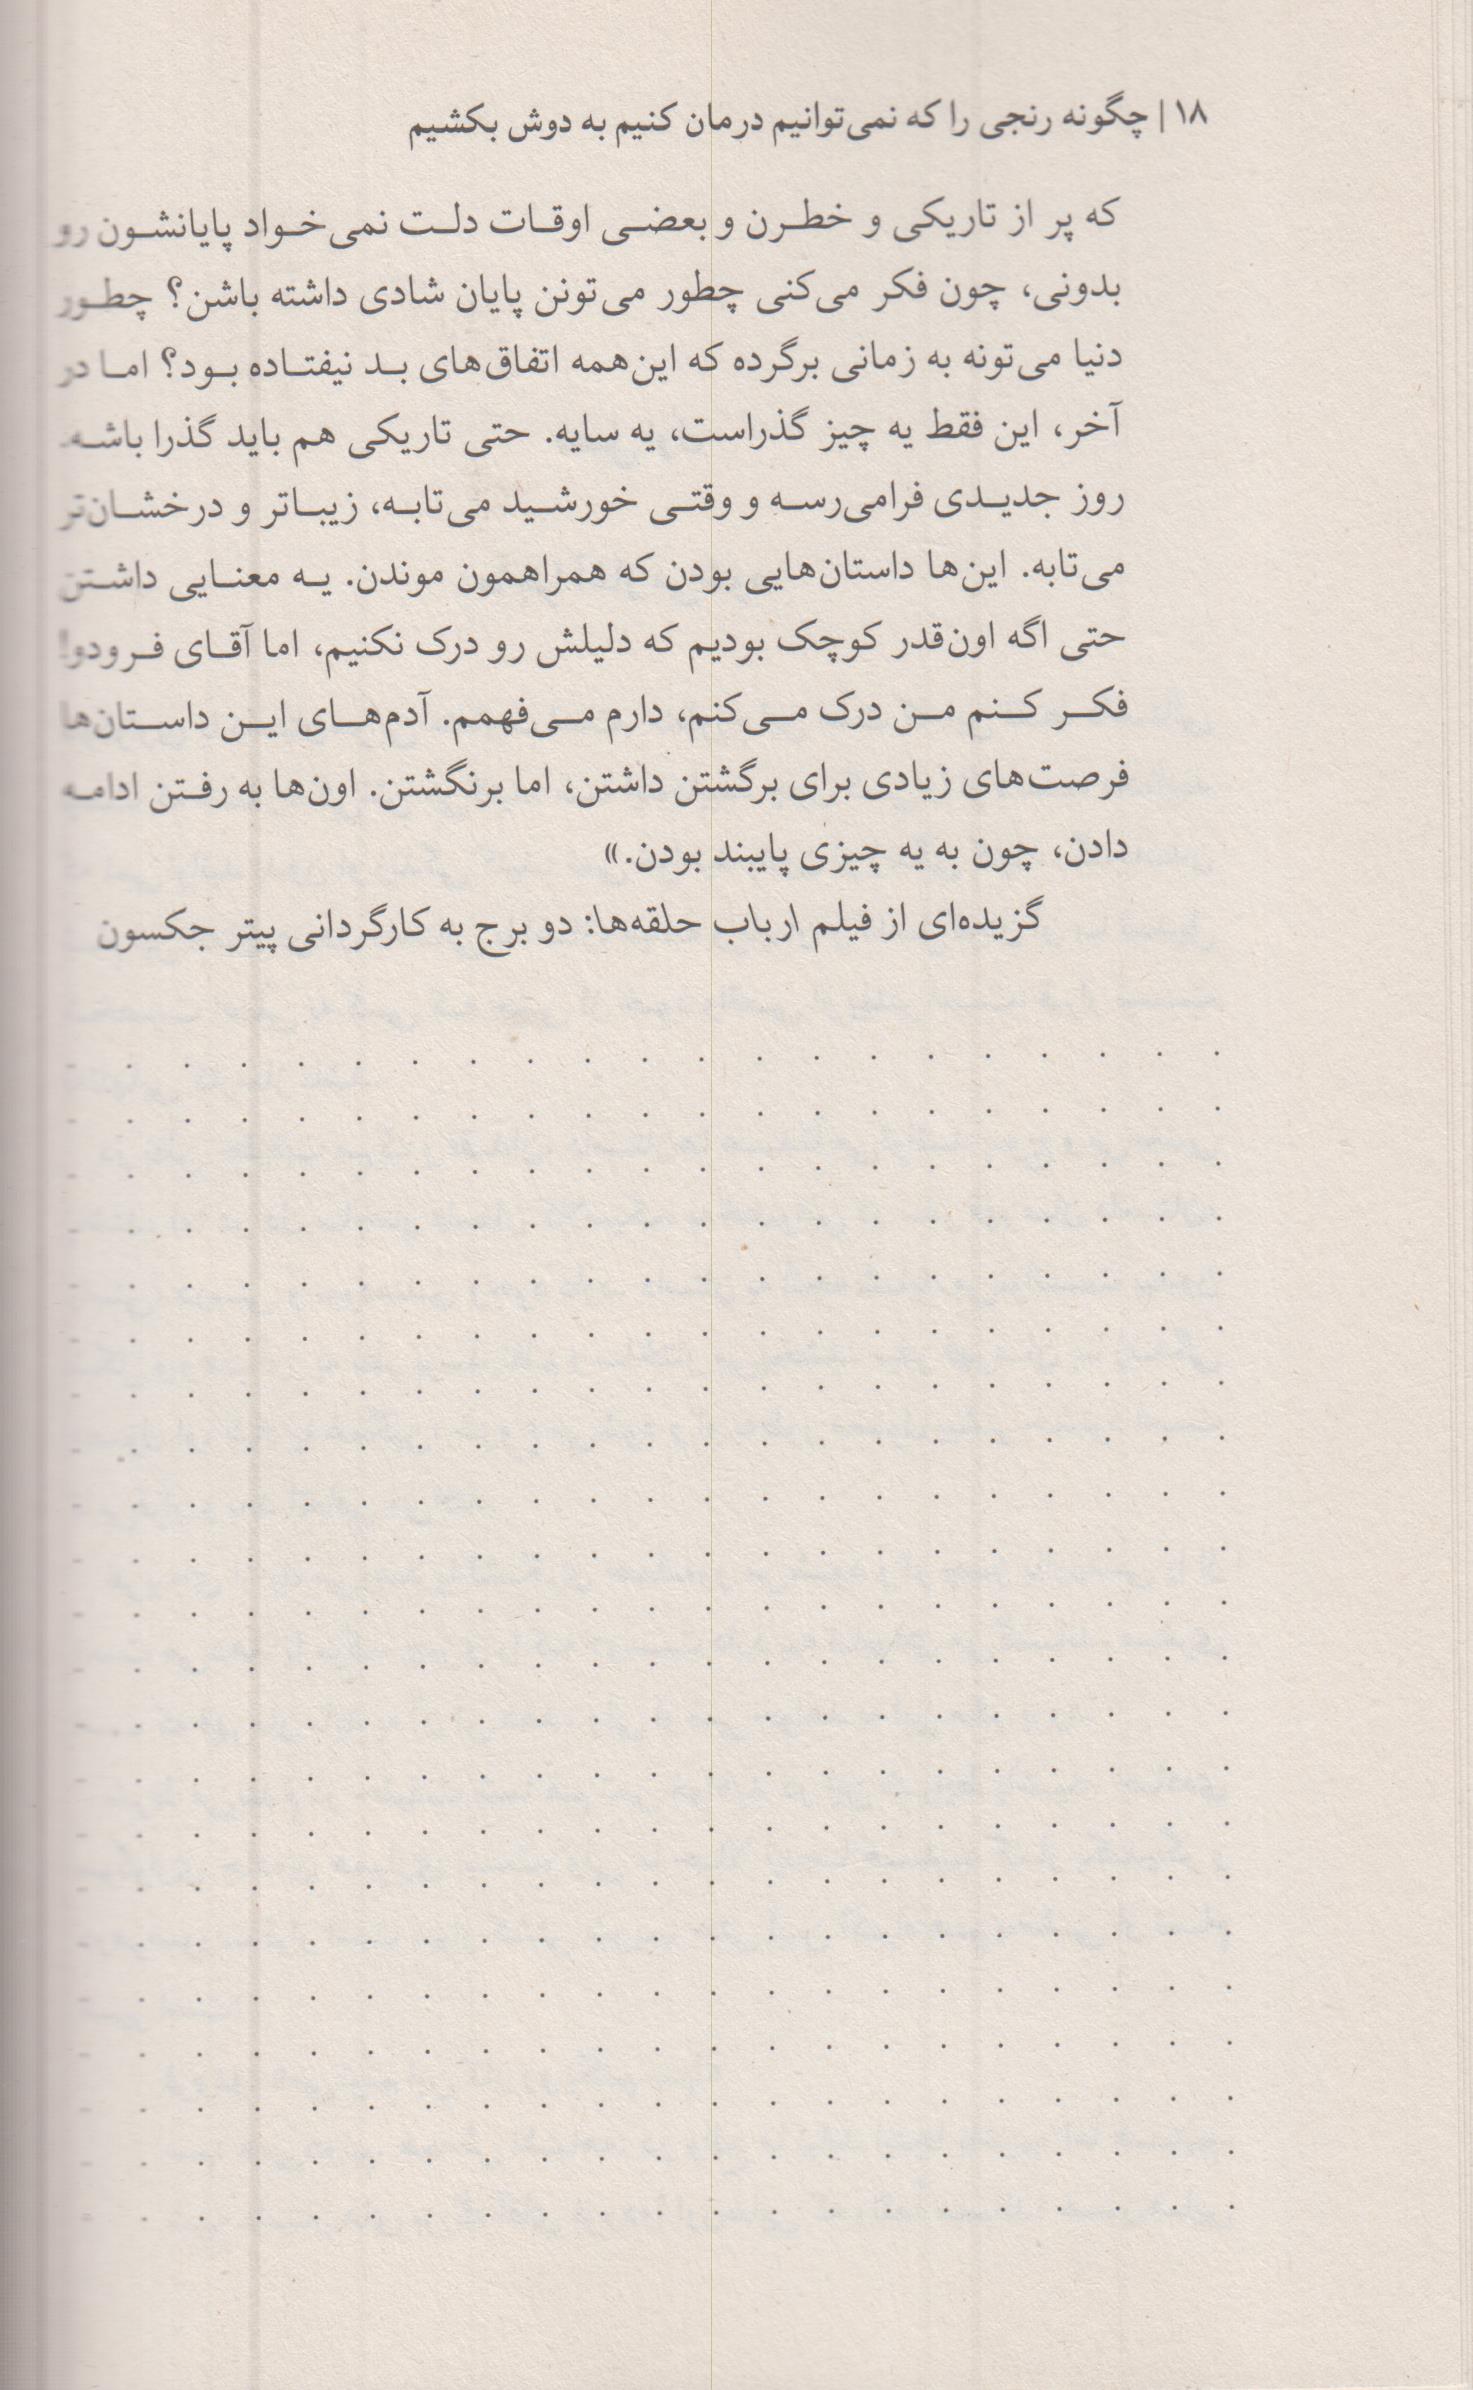 ۱۸ | چگونه رنجی را که نمی‌توانیم درمان کنیم به دوش بکشیم
که پر از تاریکی و خطرن و بعضی اوقات دلت نمی‌خواد پایانشون رو
بدونی، چون فکر می‌کنی چطور می‌تونن پایان شادی داشته باشن؟ چطور
دنیا می‌تونه به زمانی برگرده که این‌همه اتفاق‌های بد نیفتاده بود؟ اما در
آخر، این فقط یه چیز گذراست، یه سایه. حتی تاریکی هم باید گذرا باشه.
روز جدیدی فرامی‌رسه و وقتی خورشید می‌تابه، زیباتر و درخشان‌تر
می‌تابه. این‌ها داستان‌هایی بودن که همراهمون موندن. یه معنایی داشتن
حتی اگه اون‌قدر کوچک بودیم که دلیلش رو درک نکنیم، اما آقای فرودو!
فکر کنم من درک می‌کنم، دارم می‌فهمم. آدم‌های این داستان‌ها
فرصت‌های زیادی برای برگشتن داشتن، اما برنگشتن. اون‌ها به رفتن ادامه
دادن، چون به یه چیزی پایبند بودن.»
گزیده‌ای از فیلم ارباب حلقه‌ها: دو برج به کارگردانی پیتر جکسون